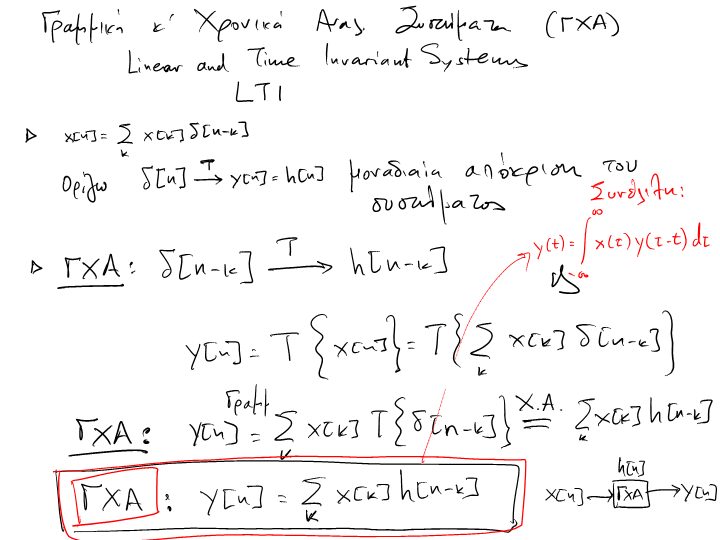 Γραμμικά κ' Χρονικά Αναλ. Συστήματα (ΓΧΑ)
Linear and Time Invariant Systems
LTI
x[n] = ∑_k x[k] δ[n-k]
Ορίζω δ[n] →^T y[n] = h[n] μοναδιαία απόκριση του
συστήματος
Συνέλιξη:
y(t) = ∫_{-∞}^{∞} x(τ) y(τ-t) dτ
ΓΧΑ: δ[n-k] →^T h[n-k]
y[n] = T{x[n]} = T{∑_k x[k] δ[n-k]}
ΓΧΑ: y[n] =^{Γραμμ} ∑_k x[k] T{δ[n-k]} =^{Χ.Α.} ∑_k x[k] h[n-k]
ΓΧΑ: y[n] = ∑_k x[k] h[n-k]
h[n]
x[n] → ΓΧΑ → y[n]